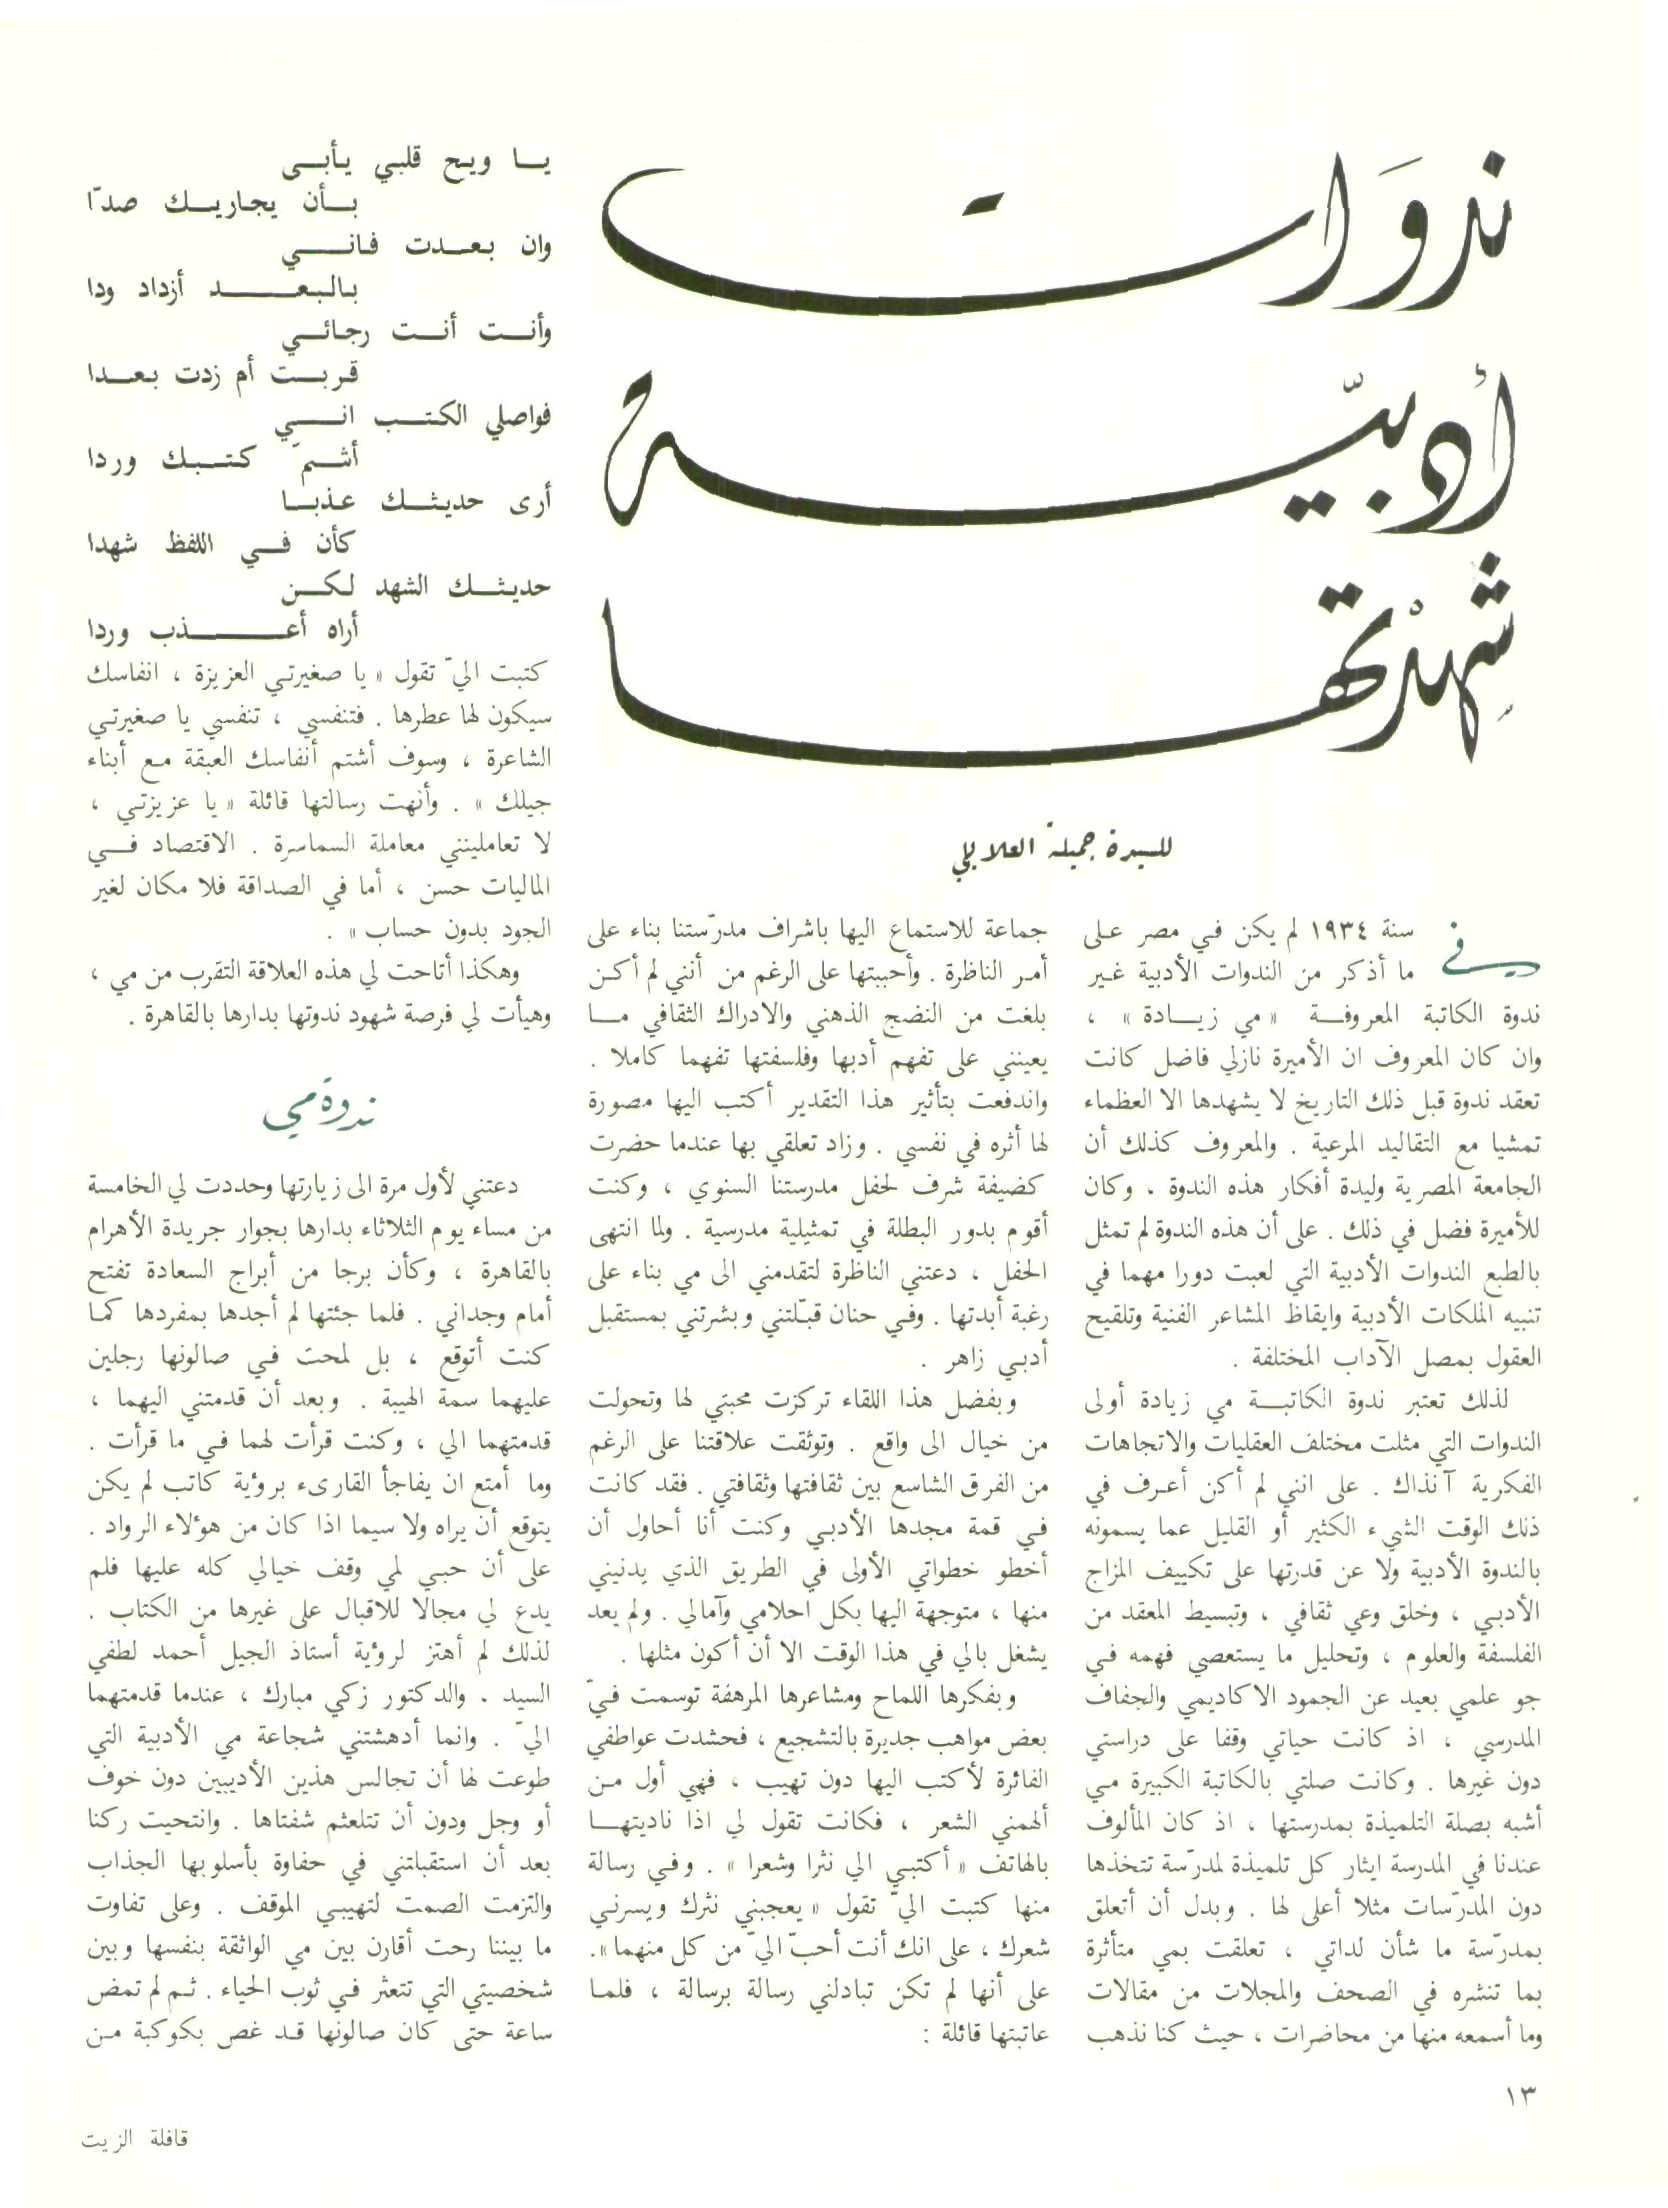 ندَوَات
أدبيّة
شهِدْتها
للسيدة جميلة العلايلي
في سنة ١٩٣٤ لم يكن في مصر على
ما أذكر من الندوات الأدبية غير
ندوة الكاتبة المعروفة « مي زيادة » ،
وان كان المعروف ان الأميرة نازلي فاضل كانت
تعقد ندوة قبل ذلك التاريخ لا يشهدها الا العظماء
تمشيا مع التقاليد المرعية . والمعروف كذلك أن
الجامعة المصرية وليدة أفكار هذه الندوة ، وكان
للأميرة فضل في ذلك . على أن هذه الندوة لم تمثل
بالطبع الندوات الأدبية التي لعبت دورا مهما في
تنبيه الملكات الأدبية وايقاظ المشاعر الفنية وتلقيح
العقول بمصل الآداب المختلفة .
لذلك تعتبر ندوة الكاتبة مي زيادة أولى
الندوات التي مثلت مختلف العقليات والاتجاهات
الفكرية آنذاك . على انني لم أكن أعرف في
ذلك الوقت الشيء الكثير أو القليل عما يسمونه
بالندوة الأدبية ولا عن قدرتها على تكييف المزاج
الأدبي ، وخلق وعي ثقافي ، وتبسيط المعقد من
الفلسفة والعلوم ، وتحليل ما يستعصي فهمه في
جو علمي بعيد عن الجمود الاكاديمي والجفاف
المدرسي ، اذ كانت حياتي وقفا على دراستي
دون غيرها . وكانت صلتي بالكاتبة الكبيرة مي
أشبه بصلة التلميذة بمدرستها ، اذ كان المألوف
عندنا في المدرسة ايثار كل تلميذة لمدرّسة تتخذها
دون المدرّسات مثلا أعلى لها . وبدل أن أتعلق
بمدرّسة ما شأن لداتي ، تعلقت بمي متأثرة
بما تنشره في الصحف والمجلات من مقالات
وما أسمعه منها من محاضرات ، حيث كنا نذهب
جماعة للاستماع اليها باشراف مدرّستنا بناء على
أمر الناظرة . وأحببتها على الرغم من أنني لم أكن
بلغت من النضج الذهني والادراك الثقافي ما
يعينني على تفهم أدبها وفلسفتها تفهما كاملا .
واندفعت بتأثير هذا التقدير أكتب اليها مصورة
لها أثره في نفسي . وزاد تعلقي بها عندما حضرت
كضيفة شرف لحفل مدرستنا السنوي ، وكنت
أقوم بدور البطلة في تمثيلية مدرسية . ولما انتهى
الحفل ، دعتني الناظرة لتقدمني الى مي بناء على
رغبة أبدتها . وفي حنان قبّلتني وبشرتني بمستقبل
أدبي زاهر .
وبفضل هذا اللقاء تركزت محبتي لها وتحولت
من خيال الى واقع . وتوثقت علاقتنا على الرغم
من الفرق الشاسع بين ثقافتها وثقافتي . فقد كانت
في قمة مجدها الأدبي وكنت أنا أحاول أن
أخطو خطواتي الأولى في الطريق الذي يدنيني
منها ، متوجهة اليها بكل احلامي وآمالي . ولم يعد
يشغل بالي في هذا الوقت الا أن أكون مثلها .
وبفكرها اللماح ومشاعرها المرهفة توسمت فيّ
بعض مواهب جديرة بالتشجيع ، فحشدت عواطفي
الفائرة لأكتب اليها دون تهيب ، فهي أول من
ألهمني الشعر ، فكانت تقول لي اذا ناديتها
بالهاتف « أكتبي الي نثرا وشعرا » . وفي رسالة
منها كتبت اليّ تقول « يعجبني نثرك ويسرني
شعرك ، على انك أنت أحبّ اليّ من كل منهما ».
على أنها لم تكن تبادلني رسالة برسالة ، فلما
عاتبتها قائلة :
يا ويح قلبي يأبى
بأن يجاريك صدّا
وان بعدت فاني
بالبعد أزداد ودا
وأنت أنت رجائي
قربت أم زدت بعدا
فواصلي الكتب اني
أشمّ كتبك وردا
أرى حديثك عذبا
كأن في اللفظ شهدا
حديثك الشهد لكن
أراه أعذب وردا
كتبت اليّ تقول « يا صغيرتي العزيزة ، انفاسك
سيكون لها عطرها . فتنفسي ، تنفسي يا صغيرتي
الشاعرة ، وسوف أشتم أنفاسك العبقة مع أبناء
جيلك » . وأنهت رسالتها قائلة « يا عزيزتي ،
لا تعاملينني معاملة السماسرة . الاقتصاد في
الماليات حسن ، أما في الصداقة فلا مكان لغير
الجود بدون حساب » .
وهكذا أتاحت لي هذه العلاقة التقرب من مي ،
وهيأت لي فرصة شهود ندوتها بدارها بالقاهرة .
ندوة مي
دعتني لأول مرة الى زيارتها وحددت لي الخامسة
من مساء يوم الثلاثاء بدارها بجوار جريدة الأهرام
بالقاهرة ، وكأن برجا من أبراج السعادة تفتح
أمام وجداني . فلما جئتها لم أجدها بمفردها كما
كنت أتوقع ، بل لمحت في صالونها رجلين
عليهما سمة الهيبة . وبعد أن قدمتني اليهما ،
قدمتهما الي ، وكنت قرأت لهما في ما قرأت .
وما أمتع ان يفاجأ القارىء برؤية كاتب لم يكن
يتوقع أن يراه ولا سيما اذا كان من هؤلاء الرواد .
على أن حبي لمي وقف خيالي كله عليها فلم
يدع لي مجالا للاقبال على غيرها من الكتاب .
لذلك لم أهتز لرؤية أستاذ الجيل أحمد لطفي
السيد . والدكتور زكي مبارك ، عندما قدمتهما
اليّ . وانما أدهشتني شجاعة مي الأدبية التي
طوعت لها أن تجالس هذين الأديبين دون خوف
أو وجل ودون أن تتلعثم شفتاها . وانتحيت ركنا
بعد أن استقبلتني في حفاوة بأسلوبها الجذاب
والتزمت الصمت لتهيبي الموقف . وعلى تفاوت
ما بيننا رحت أقارن بين مي الواثقة بنفسها وبين
شخصيتي التي تتعثر في ثوب الحياء . ثم لم تمض
ساعة حتى كان صالونها قد غص بكوكبة من
١٣
قافلة الزيت